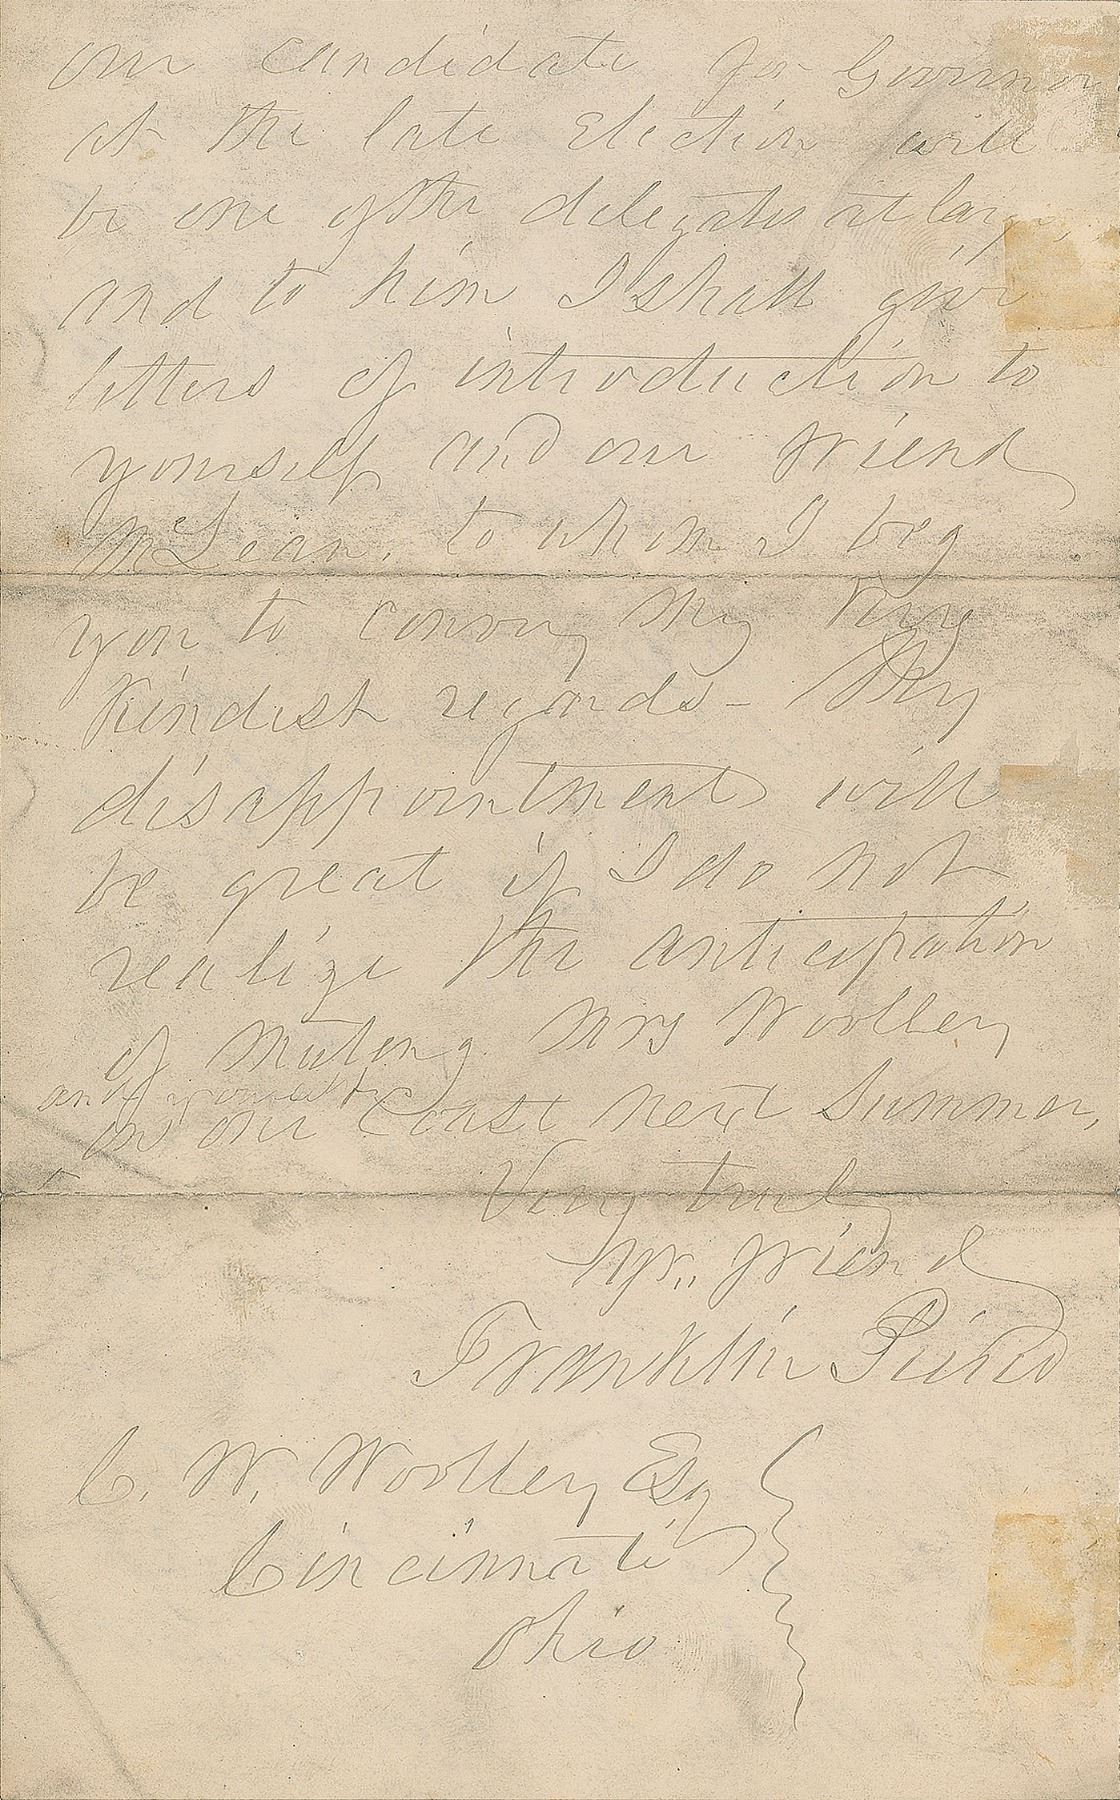 our candidate for Governor
at the late Election will
be one of the delegates at large,
and to him I shall give
letters of introduction to
yourself and our friend
McLean, to whom I beg
you to convey my very
kindest regards – My
disappointment will
be great if I do not
realize the anticipation
of meeting Mrs Woolley
and yourself
on our Coast next Summer,
Very truly
Yr. friend
Franklin Pierce
C. W. Woolley Esq
Cincinnati
Ohio